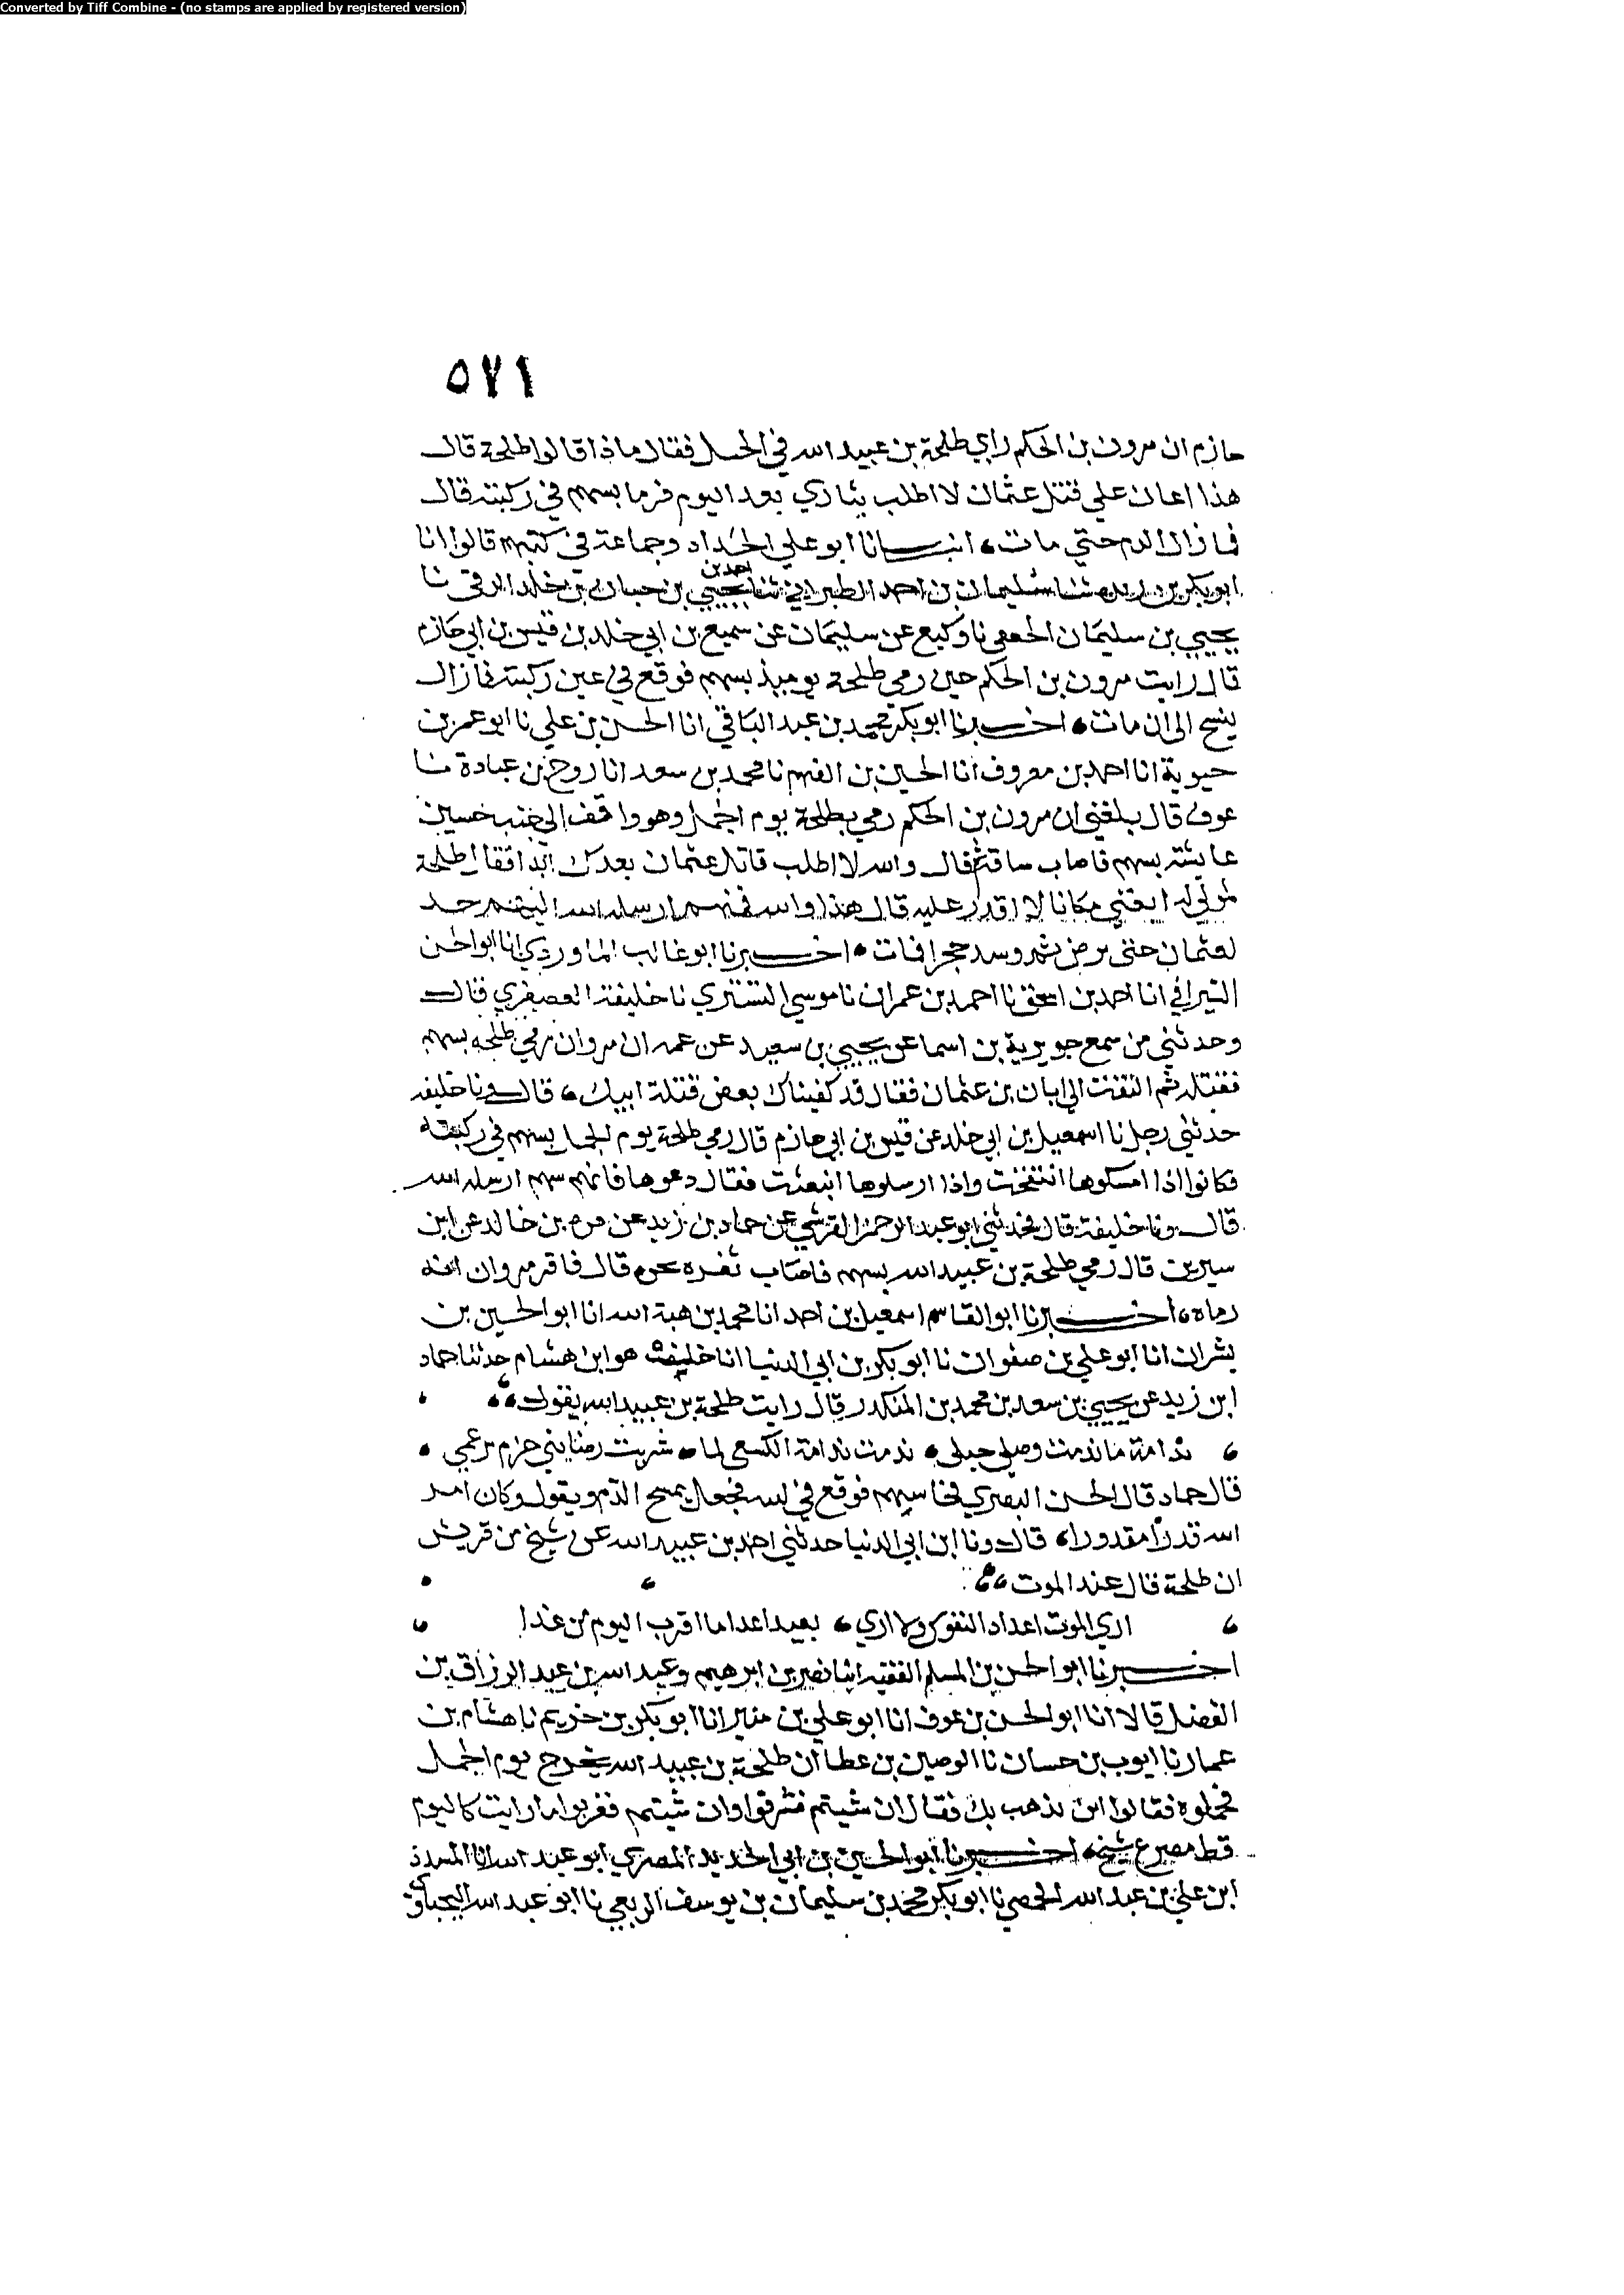 Converted by Tiff Combine - (no stamps are applied by registered version)
٥٧١
حازم ان مرون بن الحكم راي طلحة بن عبيد الله في الخيل فقال ماذا قالوا طلحة قال
هذا اعان علي قتل عثمان لا اطلب بثاري بعد اليوم فرما بسهم في ركبته قال
فما زال الدم حتي مات، انبــانا ابو علي الحداد وجماعة في كتبهم قالوا انا
ابو بكر بن ريده ثنا سليمان بن احمد الطبراني ثنا احمد بن يحيي بن حبان بن خلد الرقي نا
يحيي بن سليمان الجعفي نا وكيع عن سليمان عن سميع بن ابي خلد بن قيس بن ابي حازم
قال رايت مرون بن الحكم حين رمي طلحة يوميذ بسهم فوقع في عين ركبته فما زال
يسح الى ان مات، اخــبرنا ابو بكر محمد بن عبد الباقي انا الحسن بن علي نا ابو عمر بن
حيوية انا احمد بن معروف انا الحسين بن الفهم نا محمد بن سعد انا روح بن عبادة نا
عوف قال بلغني ان مرون بن الحكم رمي بطلحة يوم الجمل وهو واقف الي جنب
عايشة بسهم فاصاب ساقه ثم قال والله لا اطلب قاتل عثمان بعدك ابدا فقال طلحة
لمولي له ابغني مكانا لا اقدر عليه قال هذا والله سهم ارسله الله اللهم خذ
لعثمان حتى يرضى ثم وسد حجرا فمات، اخــبرنا ابو غالب الماوردي انا ابو الحسن
السيرافي انا احمد بن اسحق نا احمد بن عمران نا موسي التستري نا خليفة العصفري قال
وحدثني من سمع جويرية بن اسما عن يحيي بن سعيد عن عمه ان مروان رمي طلحة بسهم
فقتله ثم التفت الي ابان بن عثمان فقال قد كفيناك بعض قتلة ابيك، قال ونا خليفه
حدثني رجل نا اسمعيل بن ابي خلد عن قيس بن ابي حازم قال رمي طلحة يوم الجمل بسهم في ركبته
فكانوا اذا امسكوها انتفخت واذا ارسلوها انبعثت فقال دعوها فانه سهم ارسله الله
قال ونا خليفة قال فحدثني ابو عبد الرحمن القرشي عن حماد بن زيد عن قرة بن خالد عن ابن
سيرين قال رمي طلحة بن عبيد الله بسهم فاصاب ثغره نحره قال فاقر مروان انه
رماه، اخــبرنا ابو القاسم اسمعيل بن احمد انا محمد بن هبة الله انا ابو الحسين بن
بشران انا ابو علي بن صفوان نا ابو بكر بن ابي الدنيا انا خليفة هو ابن هشام حدثنا حماد
ابن زيد عن يحيي بن سعد بن محمد بن المنكدر قال رايت طلحة بن عبيد الله يقول،
ندامة ما ندمت وصل حبلى، ندمت ندامة الكسعى لما، شربت رضا بني حزم برغمي
قال حماد قال الحسن البصري فجا سهم فوقع في لبته فجعل يمسح الدم ويقول وكان امر
الله قدرا مقدورا، قال ونا ابن ابي الدنيا حدثني احمد بن عبيد الله عن شيخ من قريش
ان طلحة قال عند الموت،
اري الموت اعداد النفوس ولا اري، بعيدا غدا ما اقرب اليوم من غدا
اخــبرنا ابو الحسن بن المسلم الفقيه انبا نصر بن ابرهيم وعبد الله بن عبد الرزاق بن
الفضل قالا انا ابو الحسن بن عوف انا ابو علي بن منير انا ابو بكر بن خريم نا هشام بن
عمار نا ايوب بن حسان نا الوضين بن عطا ان طلحة بن عبيد الله خرج يوم الجمل
فحملوه فقالوا اين نذهب بك فقال ان شيتم فشرقوا وان شيتم فغربوا ما رايت كاليوم
قط مصرع شيخ، اخــبرنا ابو الحسين بن ابي الحديد المصري ابو عبد الله انا المسدد
ابن علي بن عبد الله الحمصي نا ابو بكر محمد بن سليمان بن يوسف الربعي نا ابو عبد الله